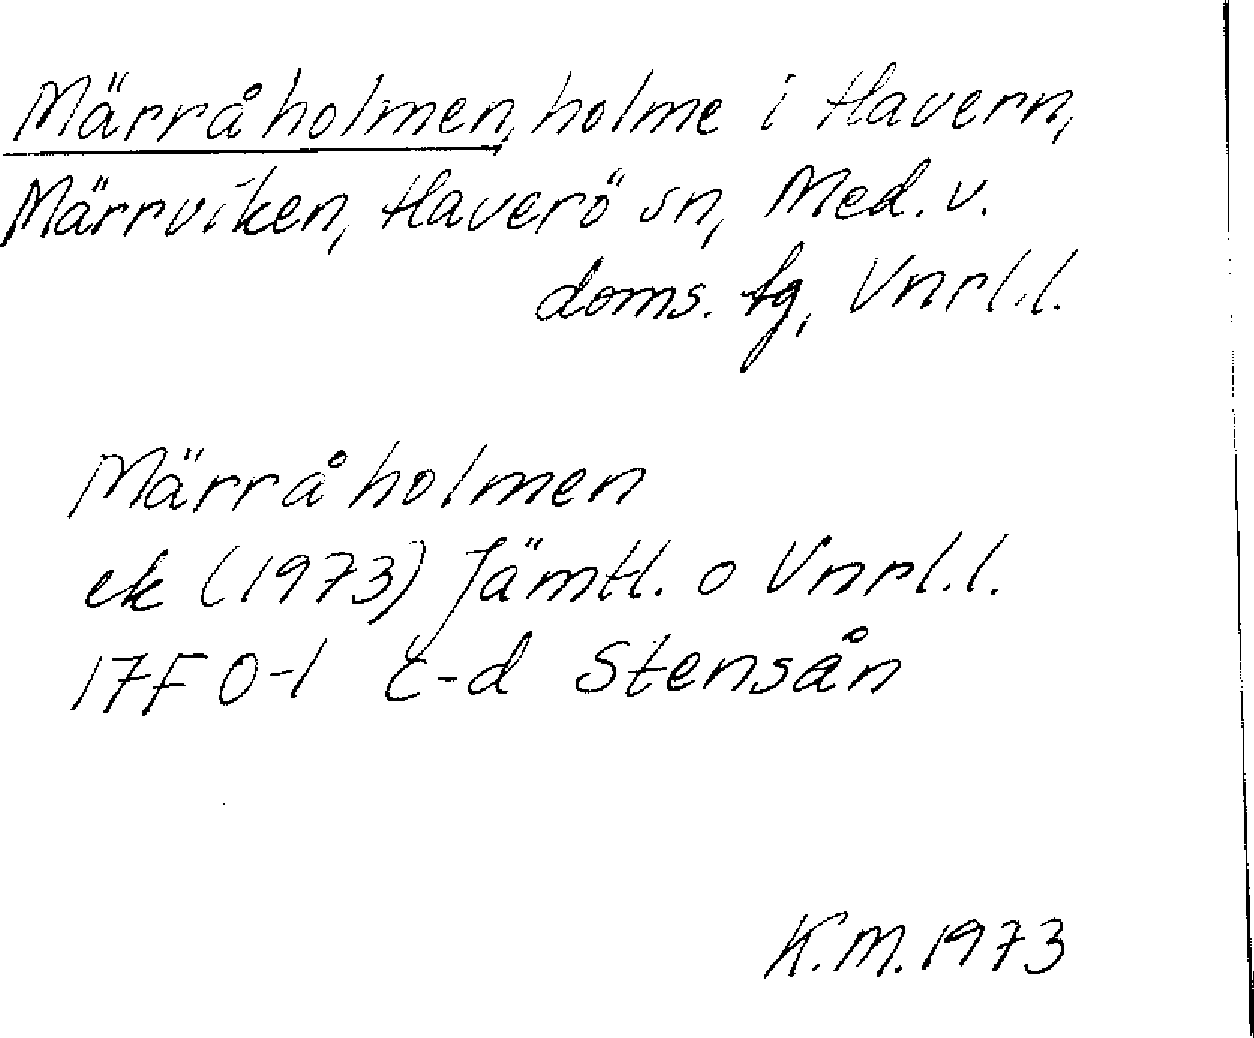 Märråholmen, holme i Havern,
Märrviken, Haverö sn, Med. v.
doms. tg, Vnrl.l.
Märråholmen
ek (1973) Jämtl. o Vnrl.l.
17F 0-1 c-d Stensån
K.M. 1973